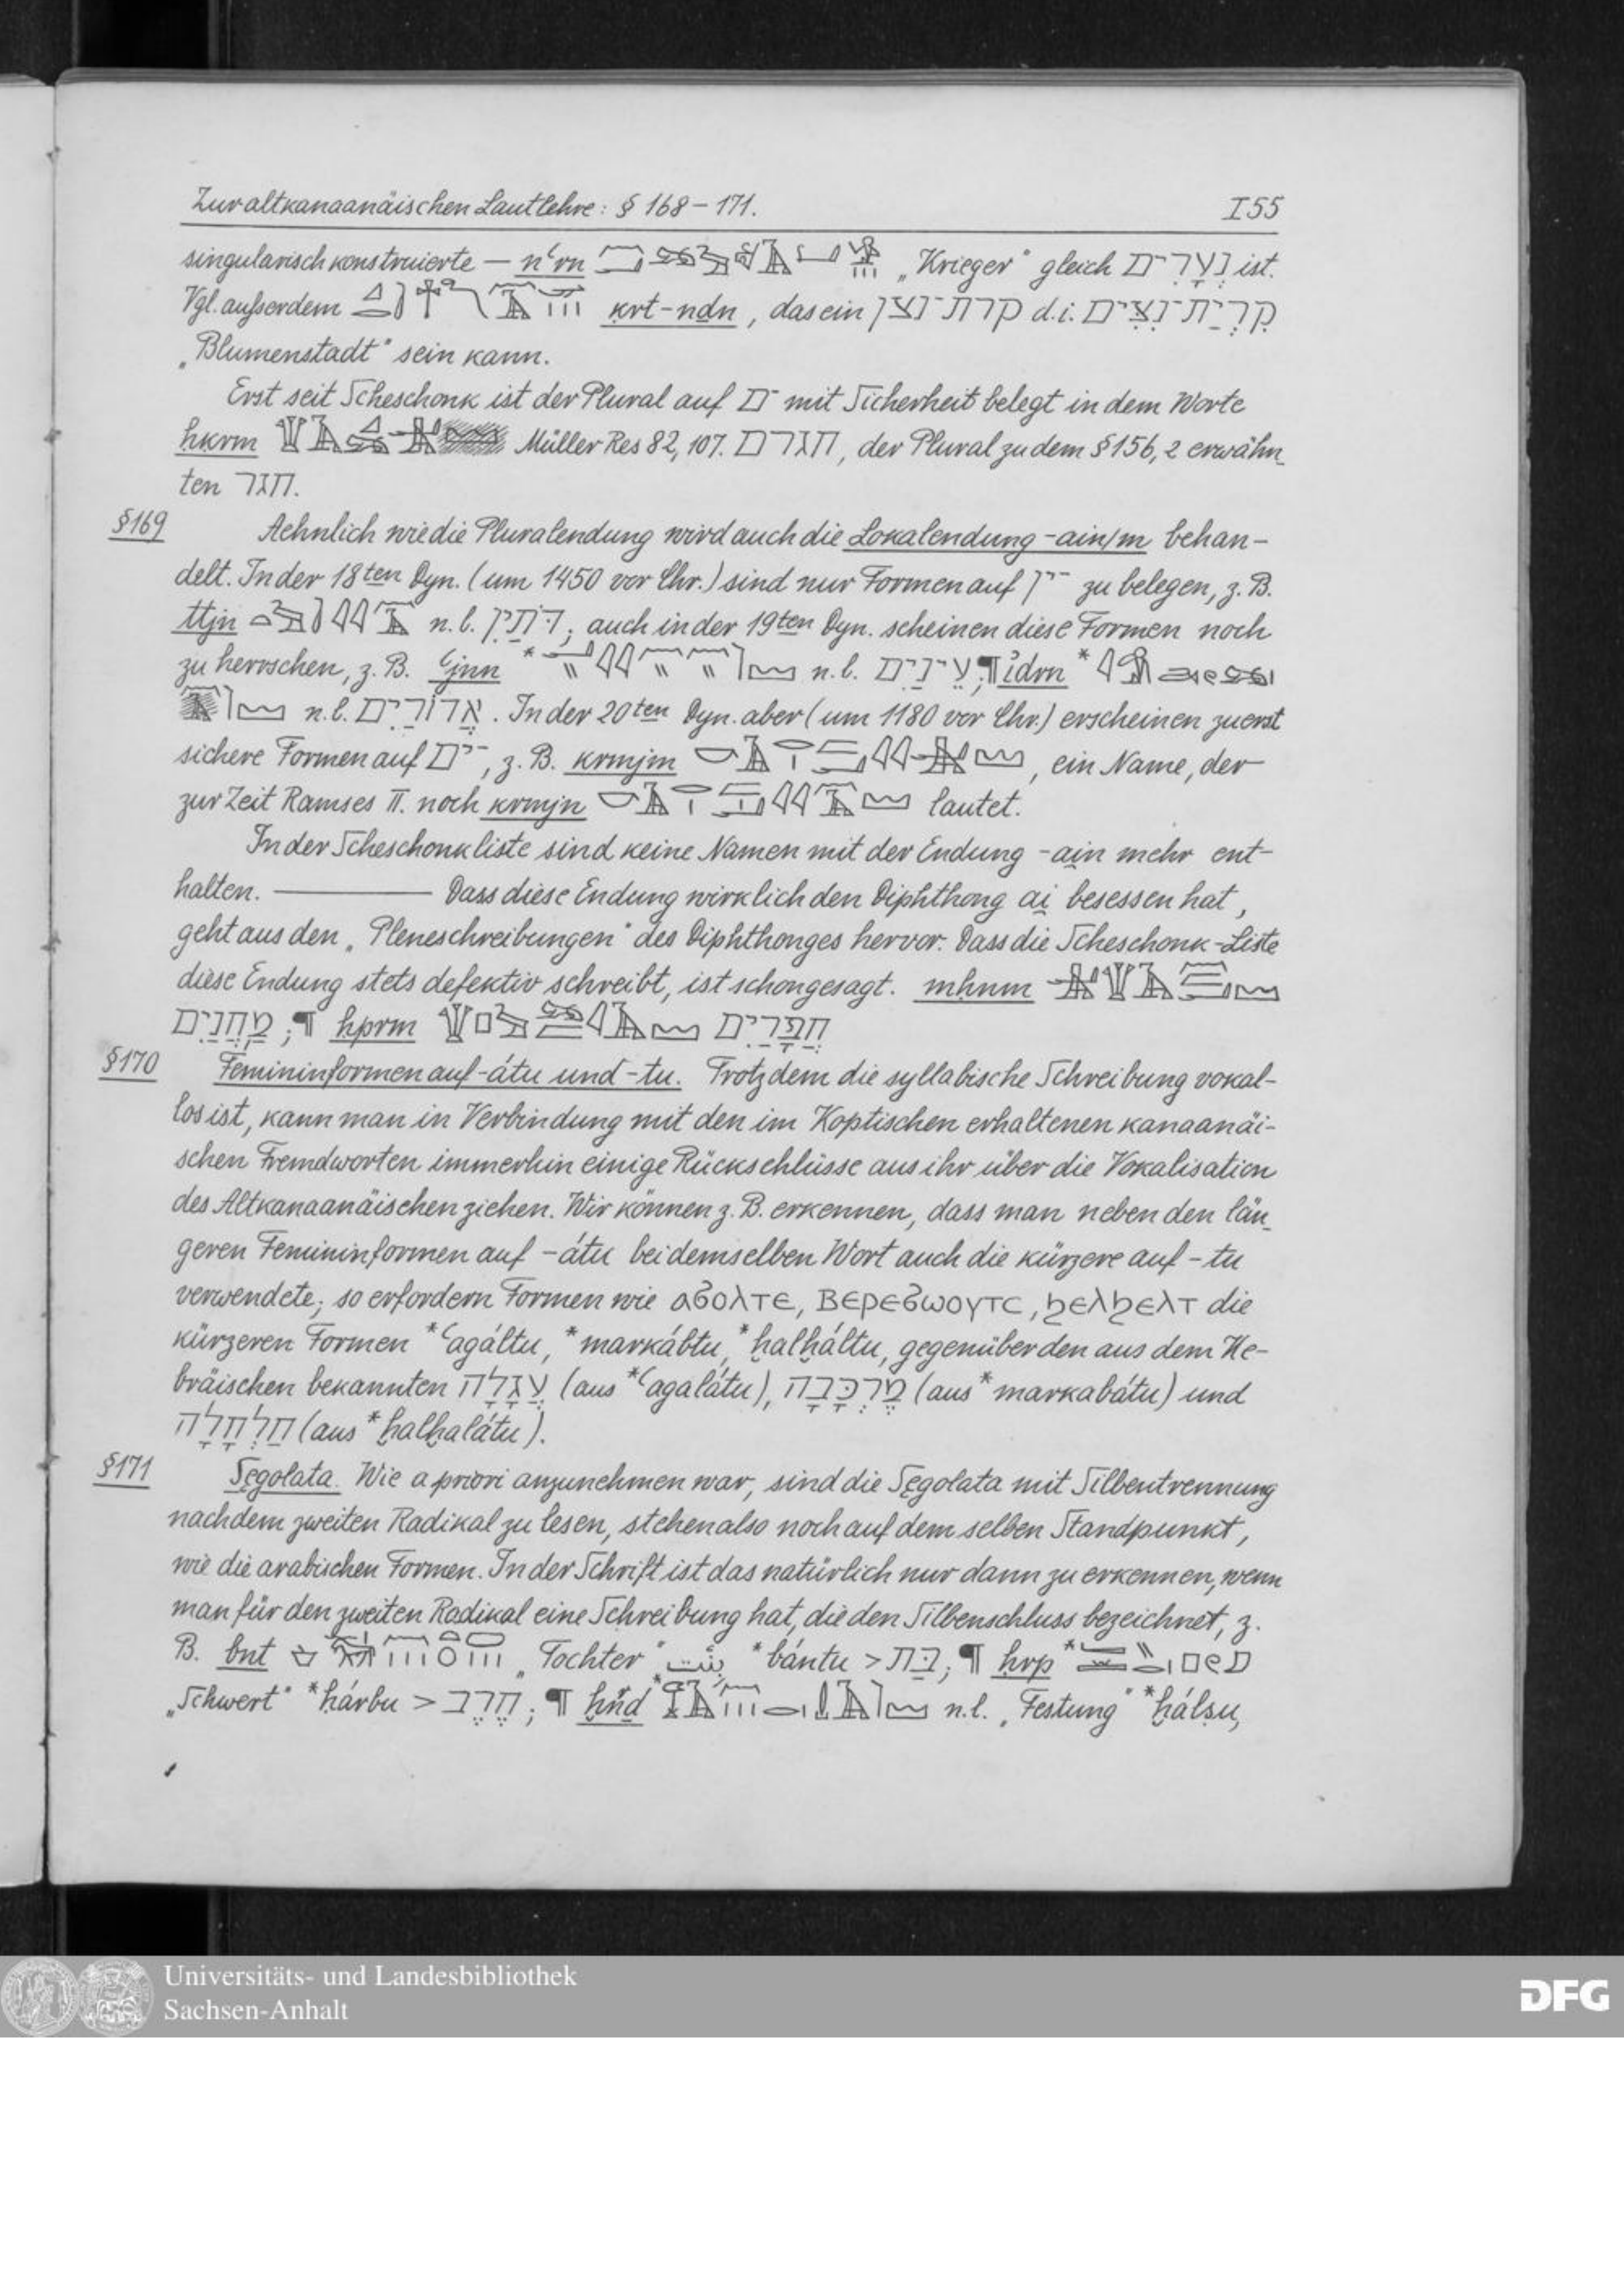 Zur altkanaanäischen Lautlehre: § 168 – 171. I55
singularisch konstruierte — nʿrn „Krieger“ gleich נְעָרִים ist.
Vgl. ausserdem ḳrt-nḏn, das ein קרת־נצן d.i. קִרְיַת־נִצִּים
„Blumenstadt“ sein kann.
Erst seit Scheschonk ist der Plural auf ־ם mit Sicherheit belegt in dem Worte
ḥḳrm Müller Res 82, 107. חגרם, der Plural zu dem § 156, 2 erwähn-
ten חגר.
§169 Aehnlich wie die Pluralendung wird auch die Lokalendung -ain/m behan-
delt. In der 18ten Dyn. (um 1450 vor Chr.) sind nur Formen auf ־ין zu belegen, z. B.
ttjn n. l. דֹּתַיִן; auch in der 19ten Dyn. scheinen diese Formen noch
zu herrschen, z. B. ʿjnn * n. l. עֵינַיִם; ¶ idrn *
n. l. אֲדוֹרַיִם. In der 20ten Dyn. aber (um 1180 vor Chr.) erscheinen zuerst
sichere Formen auf ־ים, z. B. krmjm, ein Name, der
zur Zeit Ramses II. noch krmjn lautet.
In der Scheschonkliste sind keine Namen mit der Endung -ain mehr ent-
halten. ——— Dass diese Endung wirklich den Diphthong ai besessen hat,
geht aus den „Pleneschreibungen“ des Diphthonges hervor. Dass die Scheschonk-Liste
diese Endung stets defektiv schreibt, ist schon gesagt. mḥnm
מַחֲנַיִם; ¶ ḥprm חֲפָרַיִם
§170 Femininformen auf -átu und -tu. Trotzdem die syllabische Schreibung vokal-
los ist, kann man in Verbindung mit den im Koptischen erhaltenen kanaanäi-
schen Fremdworten immerhin einige Rückschlüsse aus ihr über die Vokalisation
des Altkanaanäischen ziehen. Wir können z. B. erkennen, dass man neben den län-
geren Femininformen auf -átu bei demselben Wort auch die kürzere auf -tu
verwendete; so erfordern Formen wie ⲁϭⲟⲗⲧⲉ, ⲃⲉⲣⲉϭⲱⲟⲩⲧⲥ, ϩⲉⲗϩⲉⲗⲧ die
kürzeren Formen *ʿagáltu, *markábtu, *ḫalḫáltu, gegenüber den aus dem He-
bräischen bekannten עֲגָלָה (aus *ʿagalátu), מֶרְכָּבָה (aus *markabátu) und
חַלְחָלָה (aus *ḫalḫalátu).
§171 Segolata. Wie a priori anzunehmen war, sind die Segolata mit Silbentrennung
nach dem zweiten Radikal zu lesen, stehen also noch auf dem selben Standpunkt,
wie die arabischen Formen. In der Schrift ist das natürlich nur dann zu erkennen, wenn
man für den zweiten Radikal eine Schreibung hat, die den Silbenschluss bezeichnet, z.
B. bnt „Tochter“ بِنْت *bántu > בַּת; ¶ ḥrp *
„Schwert“ *ḥárbu > חֶרֶב; ¶ ḫnd * n. l. „Festung“ *ḫálṣu,
Universitäts- und Landesbibliothek
Sachsen-Anhalt
DFG